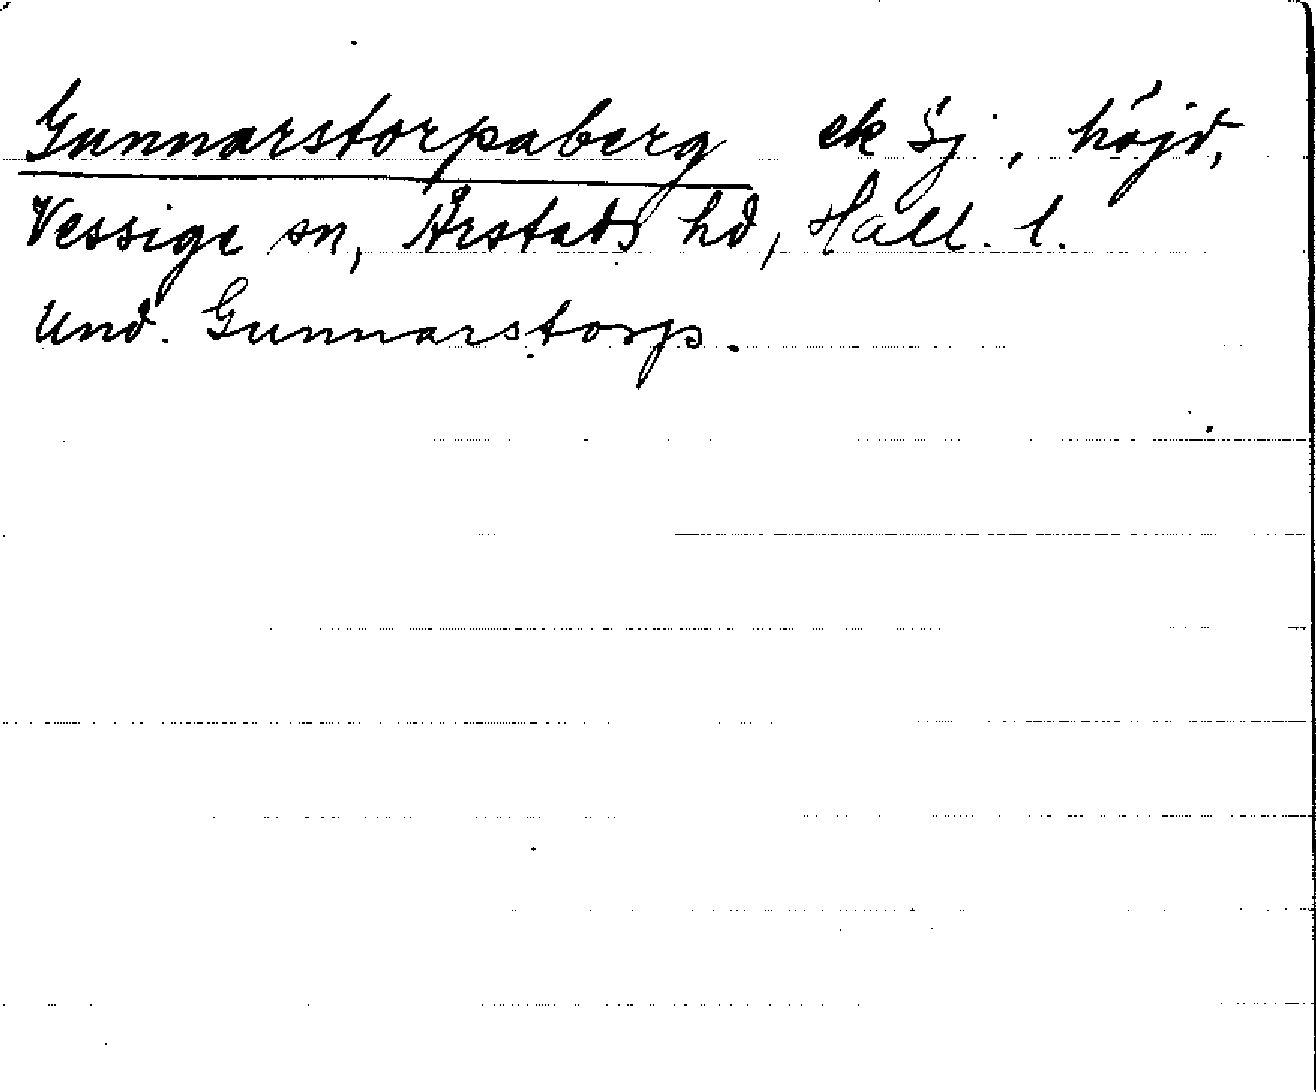 Gunnarstorpaberg ek 5j, höjd,
Vessige sn, Årstads hd, Hall. l.
Und. Gunnarstorp.